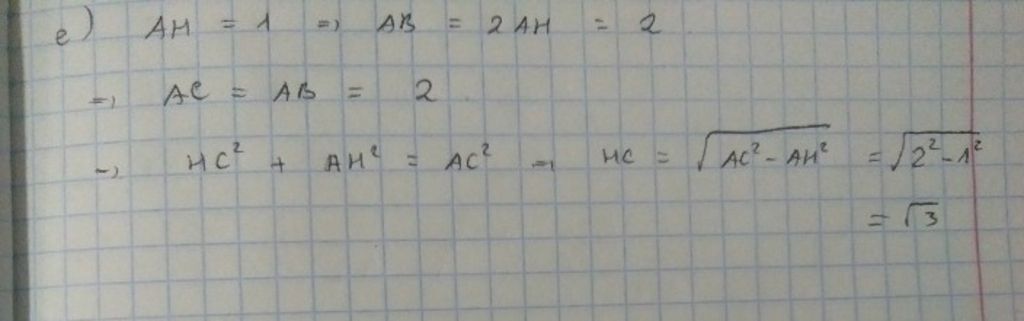 e) AH = 1 => AB = 2AH = 2
=> AC = AB = 2
=> HC² + AH² = AC² => HC = √(AC² - AH²) = √(2² - 1²)
= √3